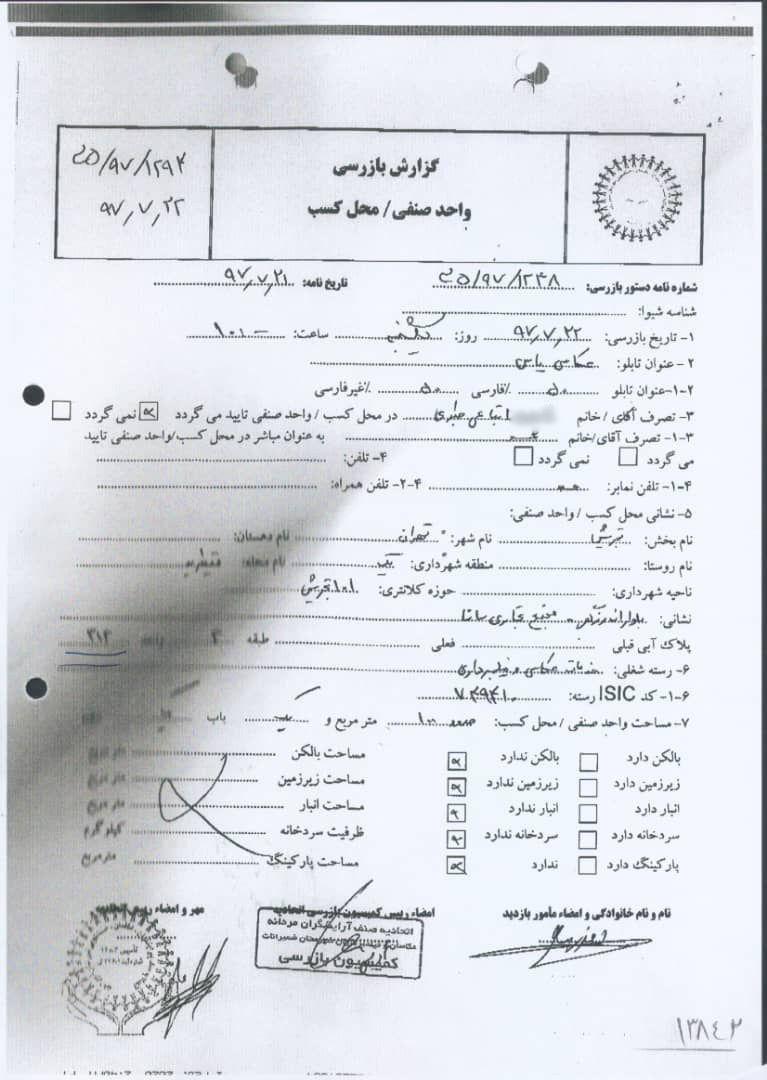 گزارش بازرسی
واحد صنفی / محل کسب
۹۷/۱۲۹۴/ص
۹۷,۷,۲۲
شماره نامه دستور بازرسی: ۹۷/۱۲۴۸/ص تاریخ نامه: ۹۷,۷,۲۱
شناسه شیوا:
۱- تاریخ بازرسی: ۹۷,۷,۲۲ روز: یکشنبه ساعت: ۱۰:۱۰
۲- عنوان تابلو: عکاسی یاس
۱-۲-عنوان تابلو ۵۰ ٪فارسی ۵۰ ٪غیرفارسی
۳- تصرف آقای / خانم در محل کسب / واحد صنفی تایید می گردد نمی گردد
۱-۳- تصرف آقای/خانم به عنوان مباشر در محل کسب/واحد صنفی تایید
می گردد نمی گردد ۴- تلفن:
۱-۴- تلفن نمابر: ۲-۴- تلفن همراه:
۵- نشانی محل کسب / واحد صنفی:
نام بخش: نام شهر: تهران نام دهستان:
نام روستا: منطقه شهرداری: یک نام محله: قیطریه
ناحیه شهرداری: حوزه کلانتری: ۱۰۱ تجریش
نشانی: مجتمع تجاری سانا
پلاک آبی قبلی فعلی طبقه ۳ واحد ۳۱۲
۶- رسته شغلی: خدمات عکاسی و فیلمبرداری
۱-۶- کد ISIC رسته: ۷۴۹۴۱۰
۷- مساحت واحد صنفی / محل کسب: حدود ۱۰۰ متر مربع و یک باب
بالکن دارد بالکن ندارد مساحت بالکن متر مربع
زیرزمین دارد زیرزمین ندارد مساحت زیرزمین متر مربع
انبار دارد انبار ندارد مساحت انبار متر مربع
سردخانه دارد سردخانه ندارد ظرفیت سردخانه کیلو گرم
پارکینگ دارد ندارد مساحت پارکینگ مترمربع
نام و نام خانوادگی و امضاء مأمور بازدید امضاء رییس کمیسیون بازرسی اتحادیه مهر و امضاء رییس اتحادیه
اتحادیه صنف آرایشگران مردانه
شهرستان شمیرانات
کمیسیون بازرسی
۱۳۸۴۲